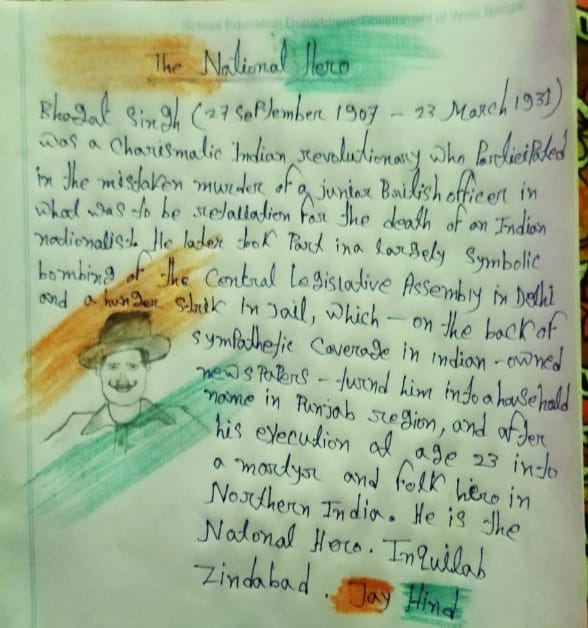 School Education Department, Government of West Bengal
The National Hero
Bhagat Singh (27 September 1907 - 23 March 1931)
was a Charismatic Indian revolutionary who Participated
in the mistaken murder of a junior British officer in
what was to be retaliation for the death of an Indian
nationalist. He later took Part in a largely Symbolic
bombing of the Central Legislative Assembly in Delhi
and a hunger strik In Jail, which - on the back of
sympathetic Coverage in indian - owned
newspapers - turnd him into a household
name in Punjab region, and after
his execution at age 23 into
a martyr and folk hero in
Northern India. He is the
Natonal Hero. Inquilab
Zindabad. Jay Hind